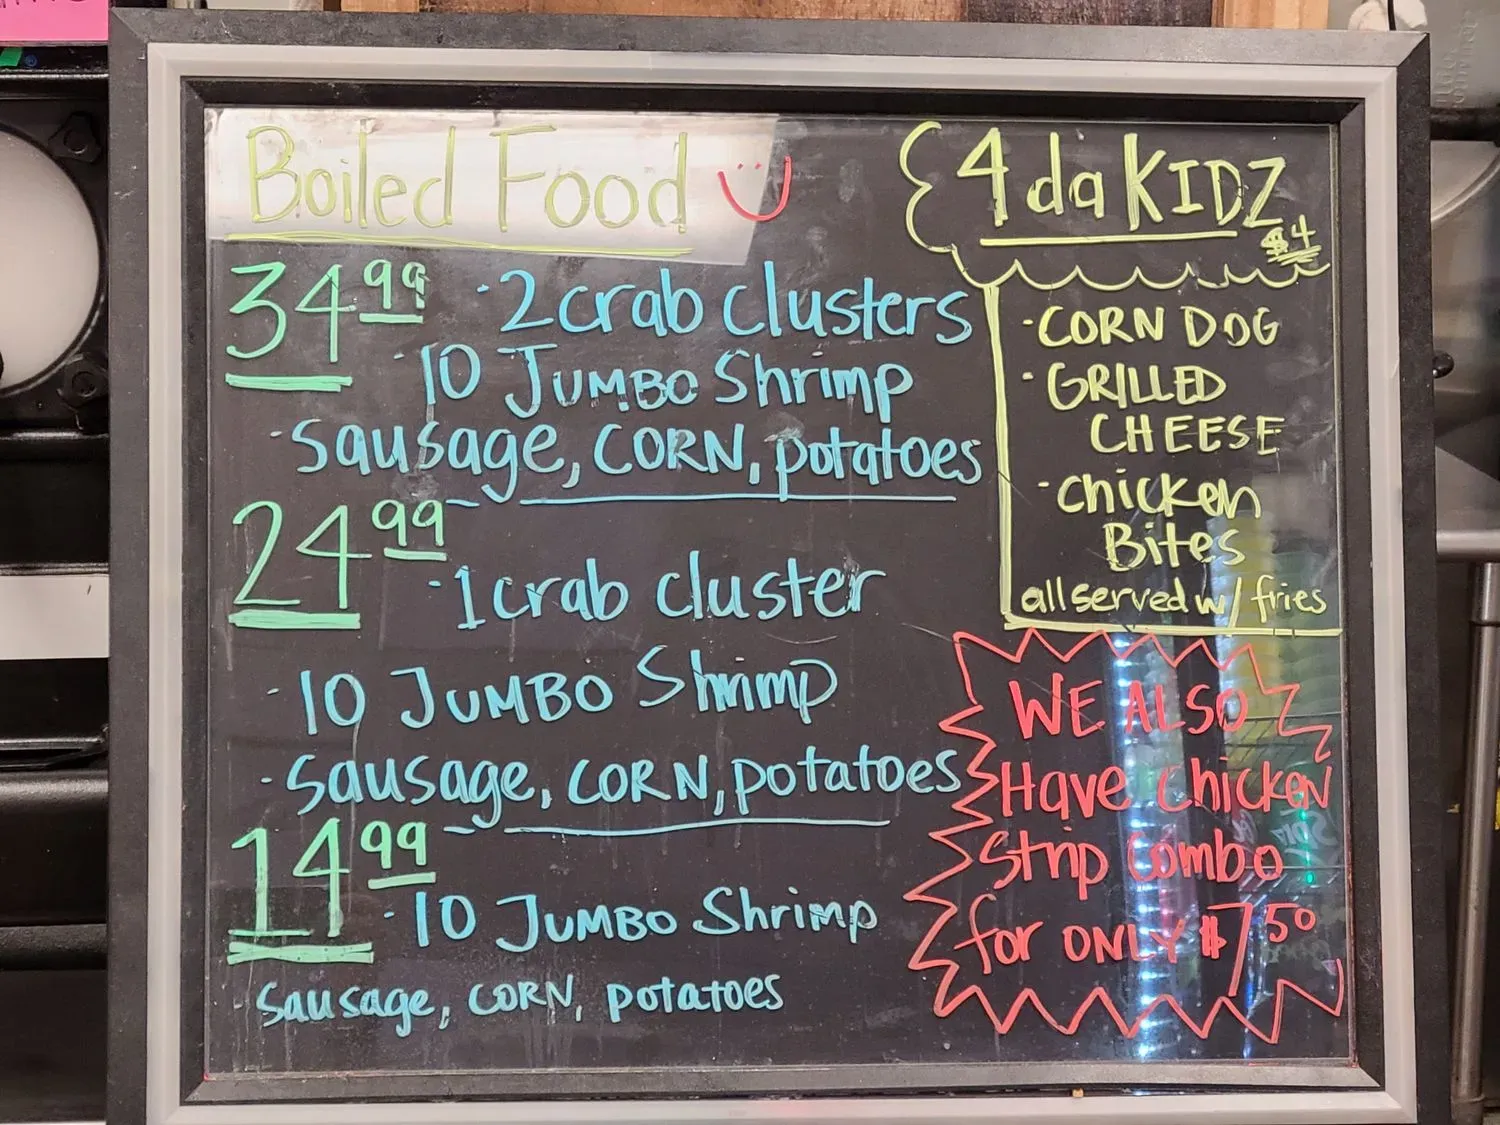 Boiled Food
34.99
· 2 crab clusters
· 10 JUMBO Shrimp
· Sausage, CORN, potatoes
24.99
· 1 crab cluster
· 10 JUMBO Shrimp
· Sausage, CORN, potatoes
14.99
· 10 JUMBO Shrimp
· Sausage, CORN, potatoes
4 da KIDZ
$4
· CORN DOG
· GRILLED
CHEESE
· Chicken
Bites
all served w/ fries
WE ALSO
Have chicken
Strip Combo
for ONLY $7.50